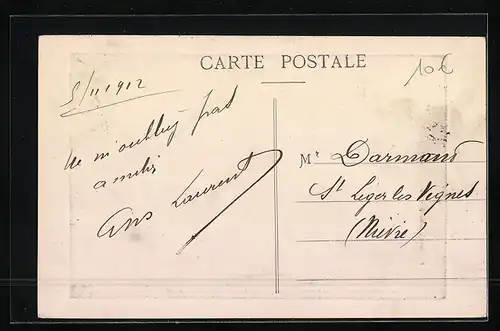 CARTE POSTALE
10€
5/11 1912
Ne m'oubliez pas
amitiés
Laurent
Mr Darmand
St Léger les Vignes
(Nièvre)